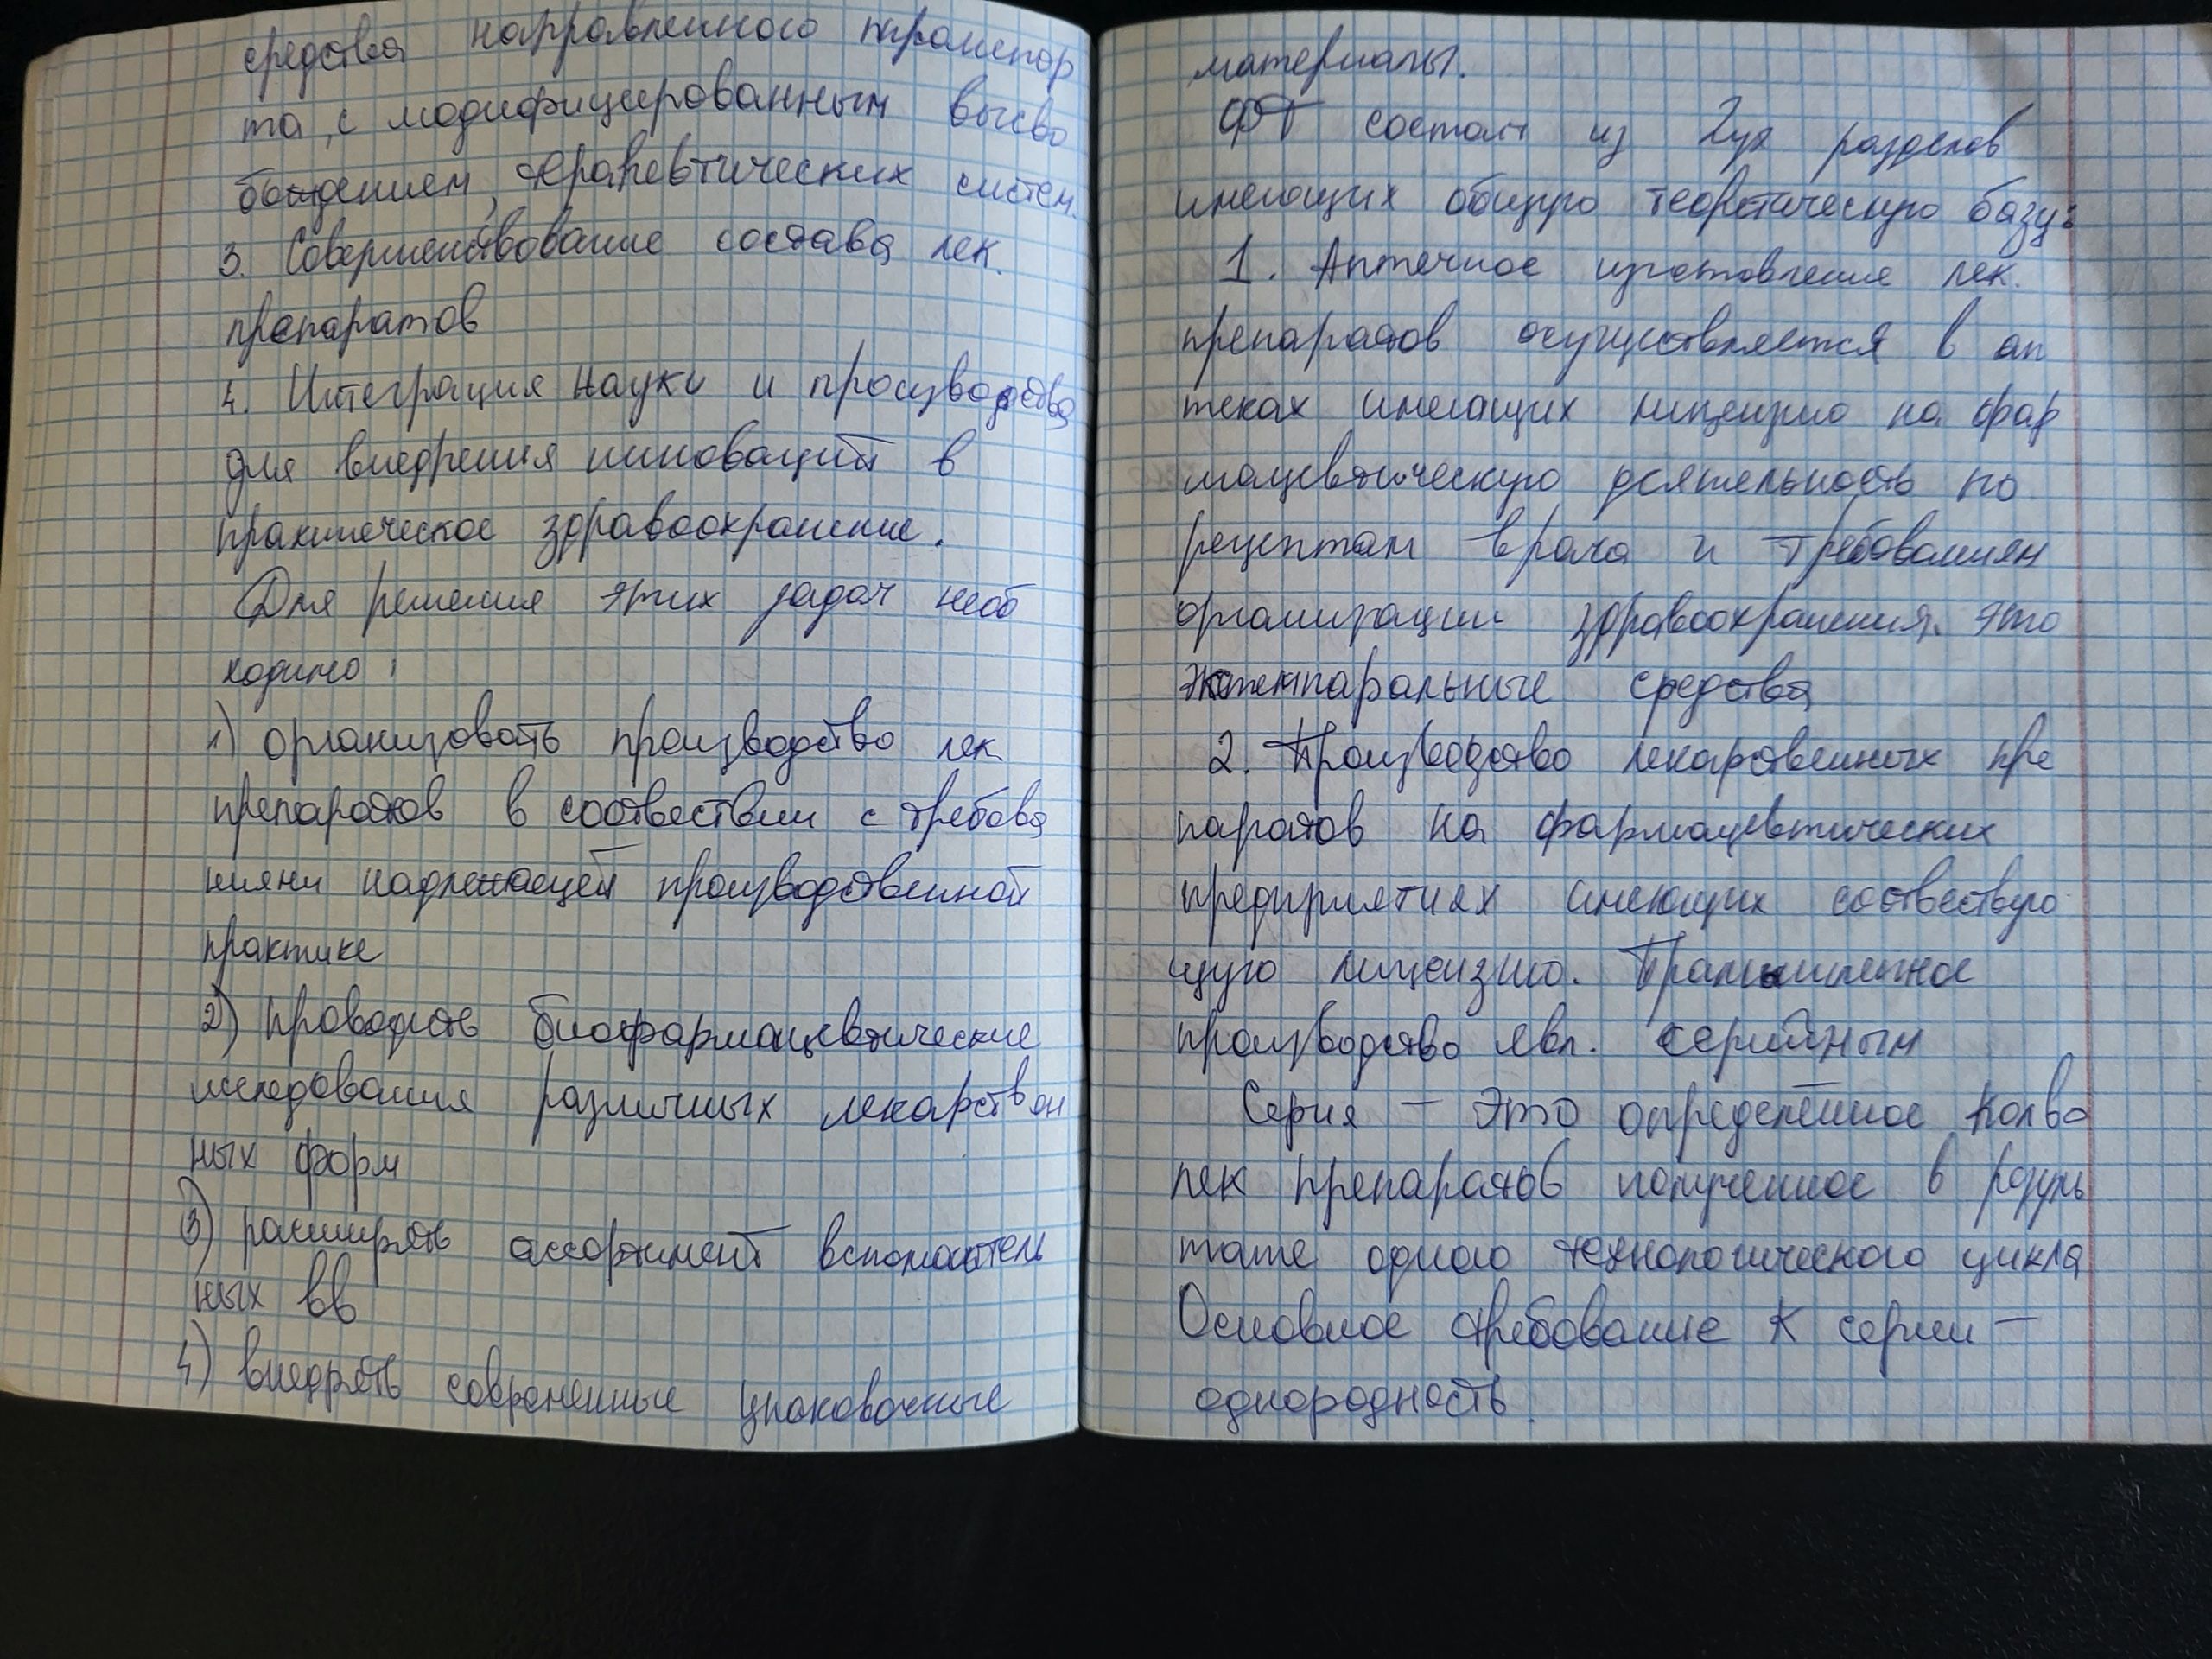 средства направленного транспор
та, с модифицированным высво
бождением, терапевтических систем.
3. Совершенствование состава лек.
препаратов
4. Интеграция науки и производства
для внедрения инноваций в
практическое здравоохранение.
Для решения этих задач необ
ходимо:
1) организовать производство лек
препаратов в соотвествии с требова
ниями надлежащей производственной
практике
2) проводить биофармацевтические
исследования различных лекарствен
ных форм
3) расширять ассортимент вспомогатель
ных вв
4) внедрять современные упаковочные
материалы.
ФТ состоит из 2ух разделов
имеющих общую теоретическую базу:
1. Аптечное изготовление лек.
препаратов осуществляется в ап
теках имеющих лицензию на фар
мацевтическую деятельность по
рецептам врача и требованиям
организации здравоохранения. это
экстемпаральные средства
2. Производство лекарственных пре
паратов на фармацевтических
предприятиях имеющих соотвествую
щую лицензию. Промышленное
производство явл. серийным
Серия – это определённое колво
лек препаратов полученное в резуль
тате одного технологического цикла
Основное требование к серии –
однородность.